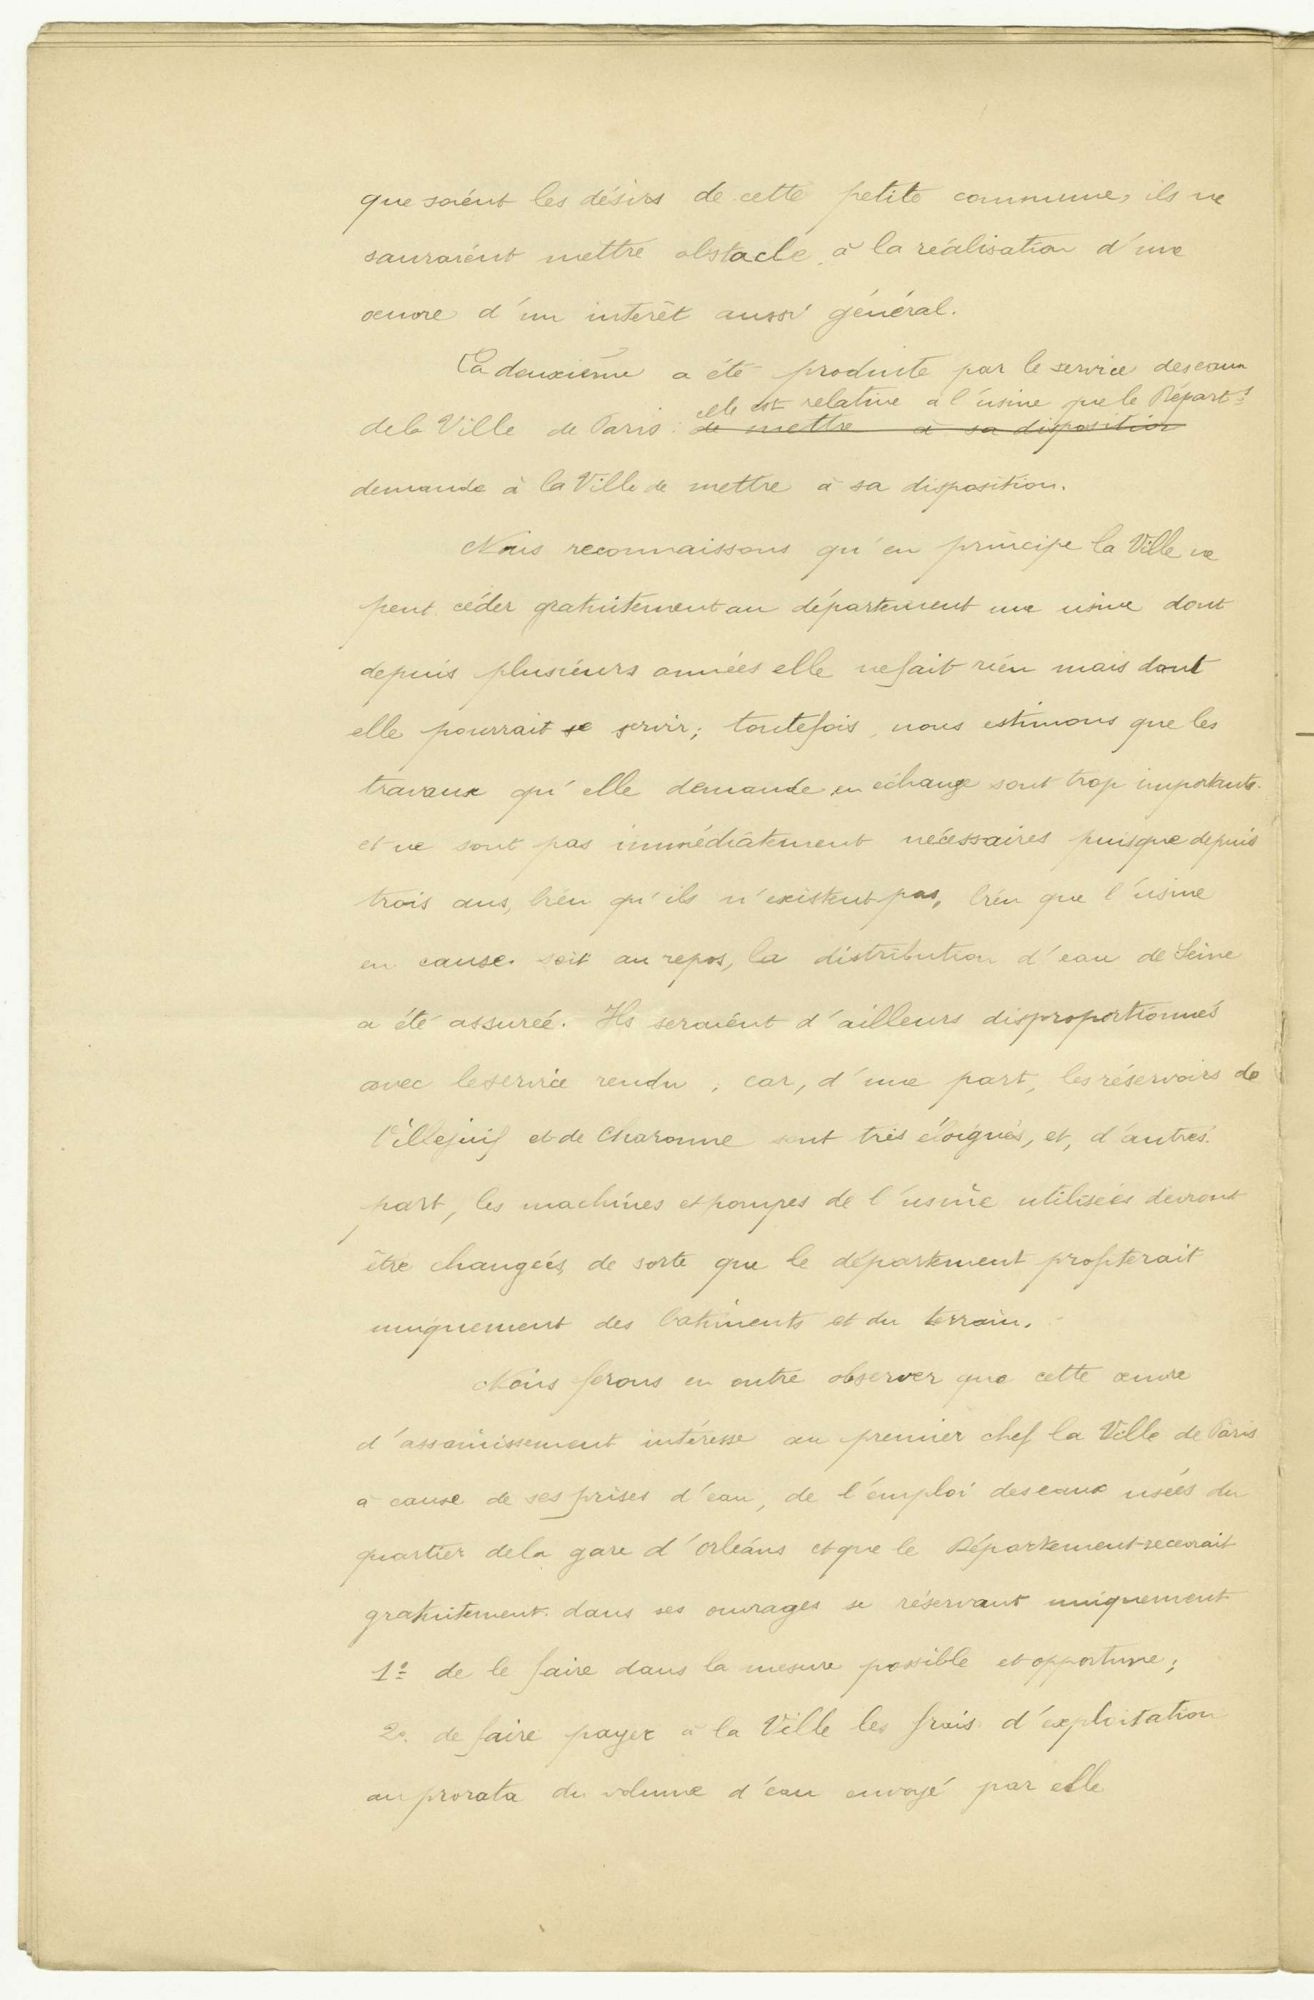 que soient les désirs de cette petite commune, ils ne
sauraient mettre obstacle à la réalisation d'une
œuvre d'un intérêt aussi général.
La deuxième a été produite par le service des eaux
elle est relative à l'usine que le Départt
de la Ville de Paris : de mettre à sa disposition
demande à la Ville de mettre à sa disposition.
Nous reconnaissons qu'en principe la Ville ne
peut céder gratuitement au département une usine dont
depuis plusieurs années elle ne fait rien mais dont
elle pourrait se servir ; toutefois, nous estimons que les
travaux qu'elle demande en échange sont trop importants
et ne sont pas immédiatement nécessaires puisque depuis
trois ans, bien qu'ils n'existent pas, bien que l'usine
en cause soit au repos, la distribution d'eau de Seine
a été assurée. Ils seraient d'ailleurs disproportionnés
avec le service rendu, car, d'une part, les réservoirs de
Villejuif et de Charonne sont très éloignés, et, d'autre
part, les machines et pompes de l'usine utilisées devront
être changées, de sorte que le département profiterait
uniquement des batiments et du terrain.
Nous ferons en outre observer que cette œuvre
d'assainissement intéresse au premier chef la Ville de Paris
à cause de ses prises d'eau, de l'emploi des eaux usées du
quartier de la gare d'Orléans et que le Département recevrait
gratuitement dans ses ouvrages se réservant uniquement
1º de le faire dans la mesure possible et opportune ;
2º. de faire payer à la Ville les frais d'exploitation
au prorata du volume d'eau envoyé par elle